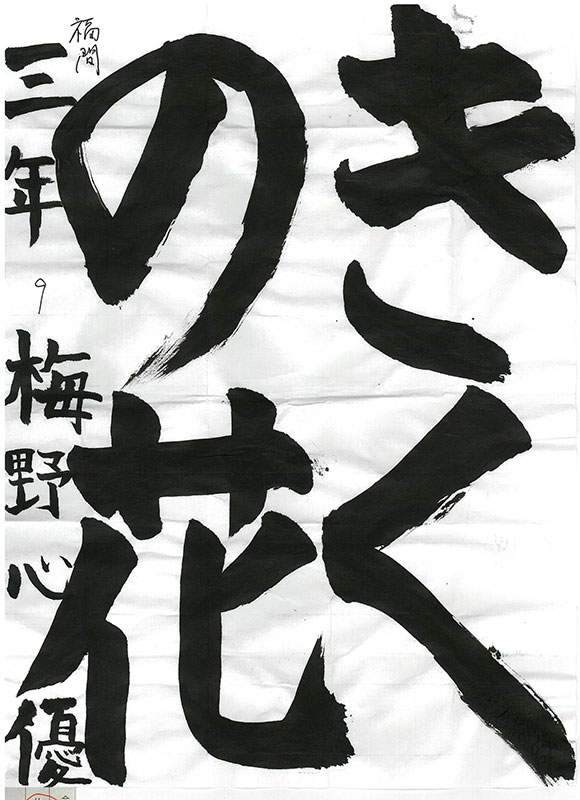 きく
の花
福間
三年 9 梅野心優